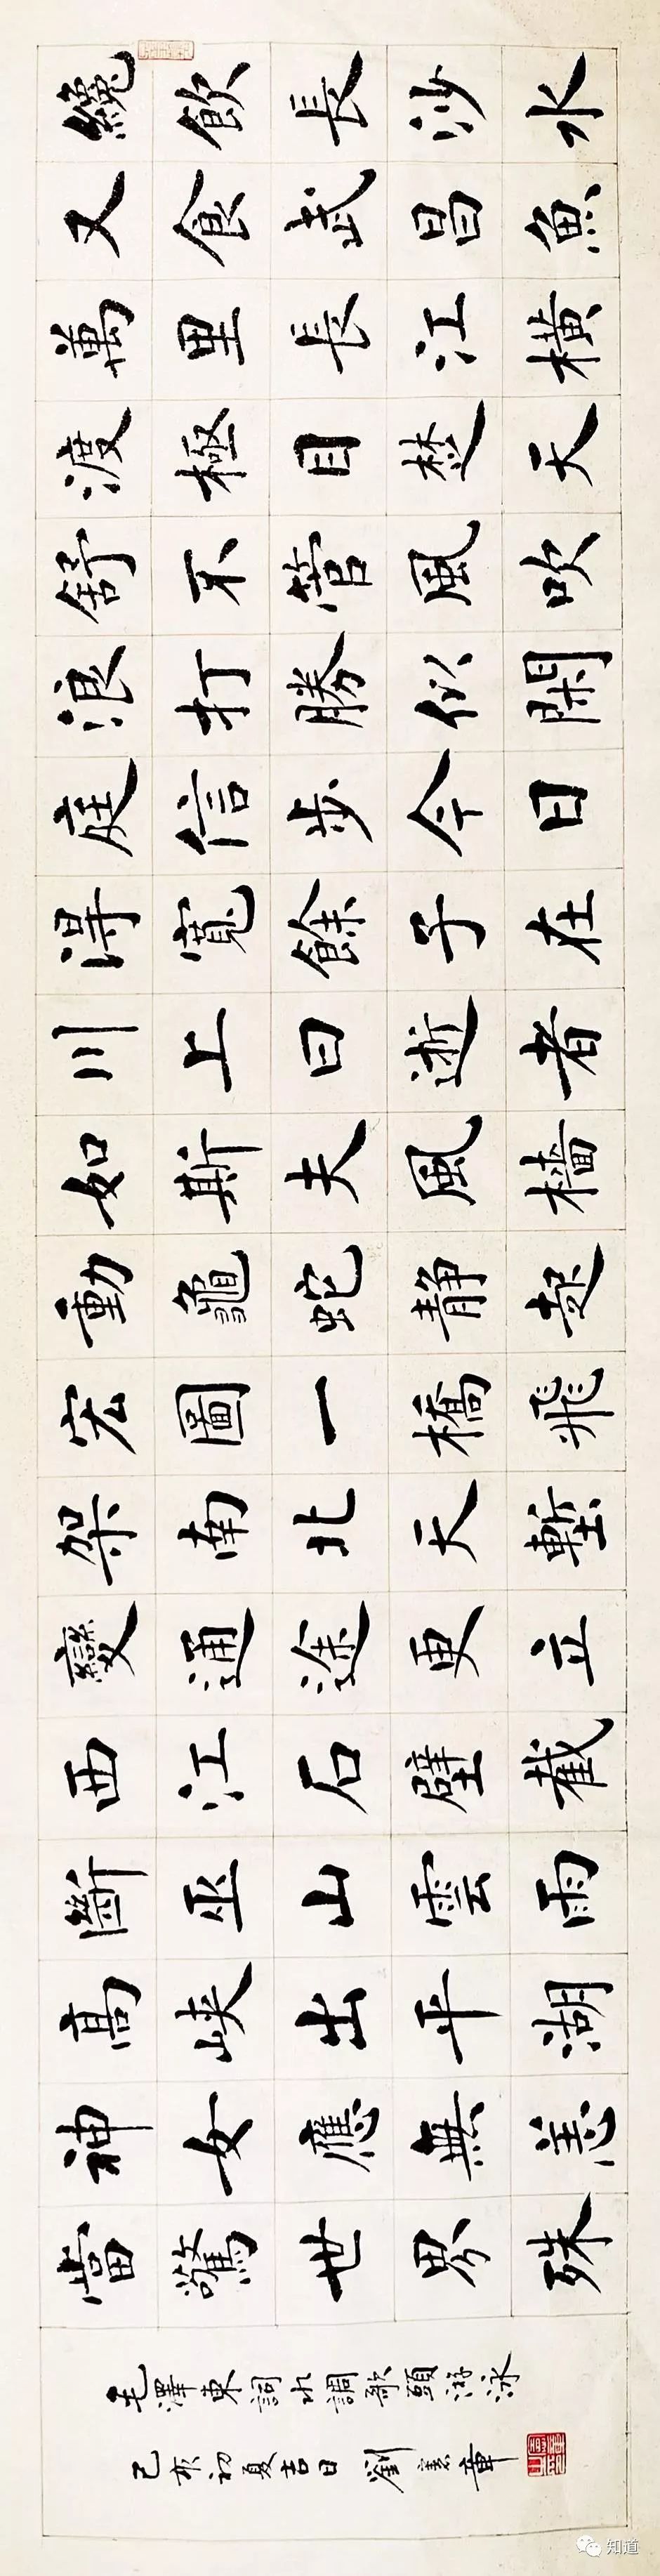 纔飲長沙水
又食武昌魚
萬里長江橫
渡極目楚天
舒不管風吹
浪打勝似閑
庭信步今日
得寬餘子在
川上曰逝者
如斯夫風檣
動龜蛇靜起
宏圖一橋飛
架南北天塹
變通途更立
西江石壁截
斷巫山雲雨
高峽出平湖
神女應無恙
當驚世界殊
毛澤東詞水調歌頭游泳
己亥初夏吉日 劉憲章
知道